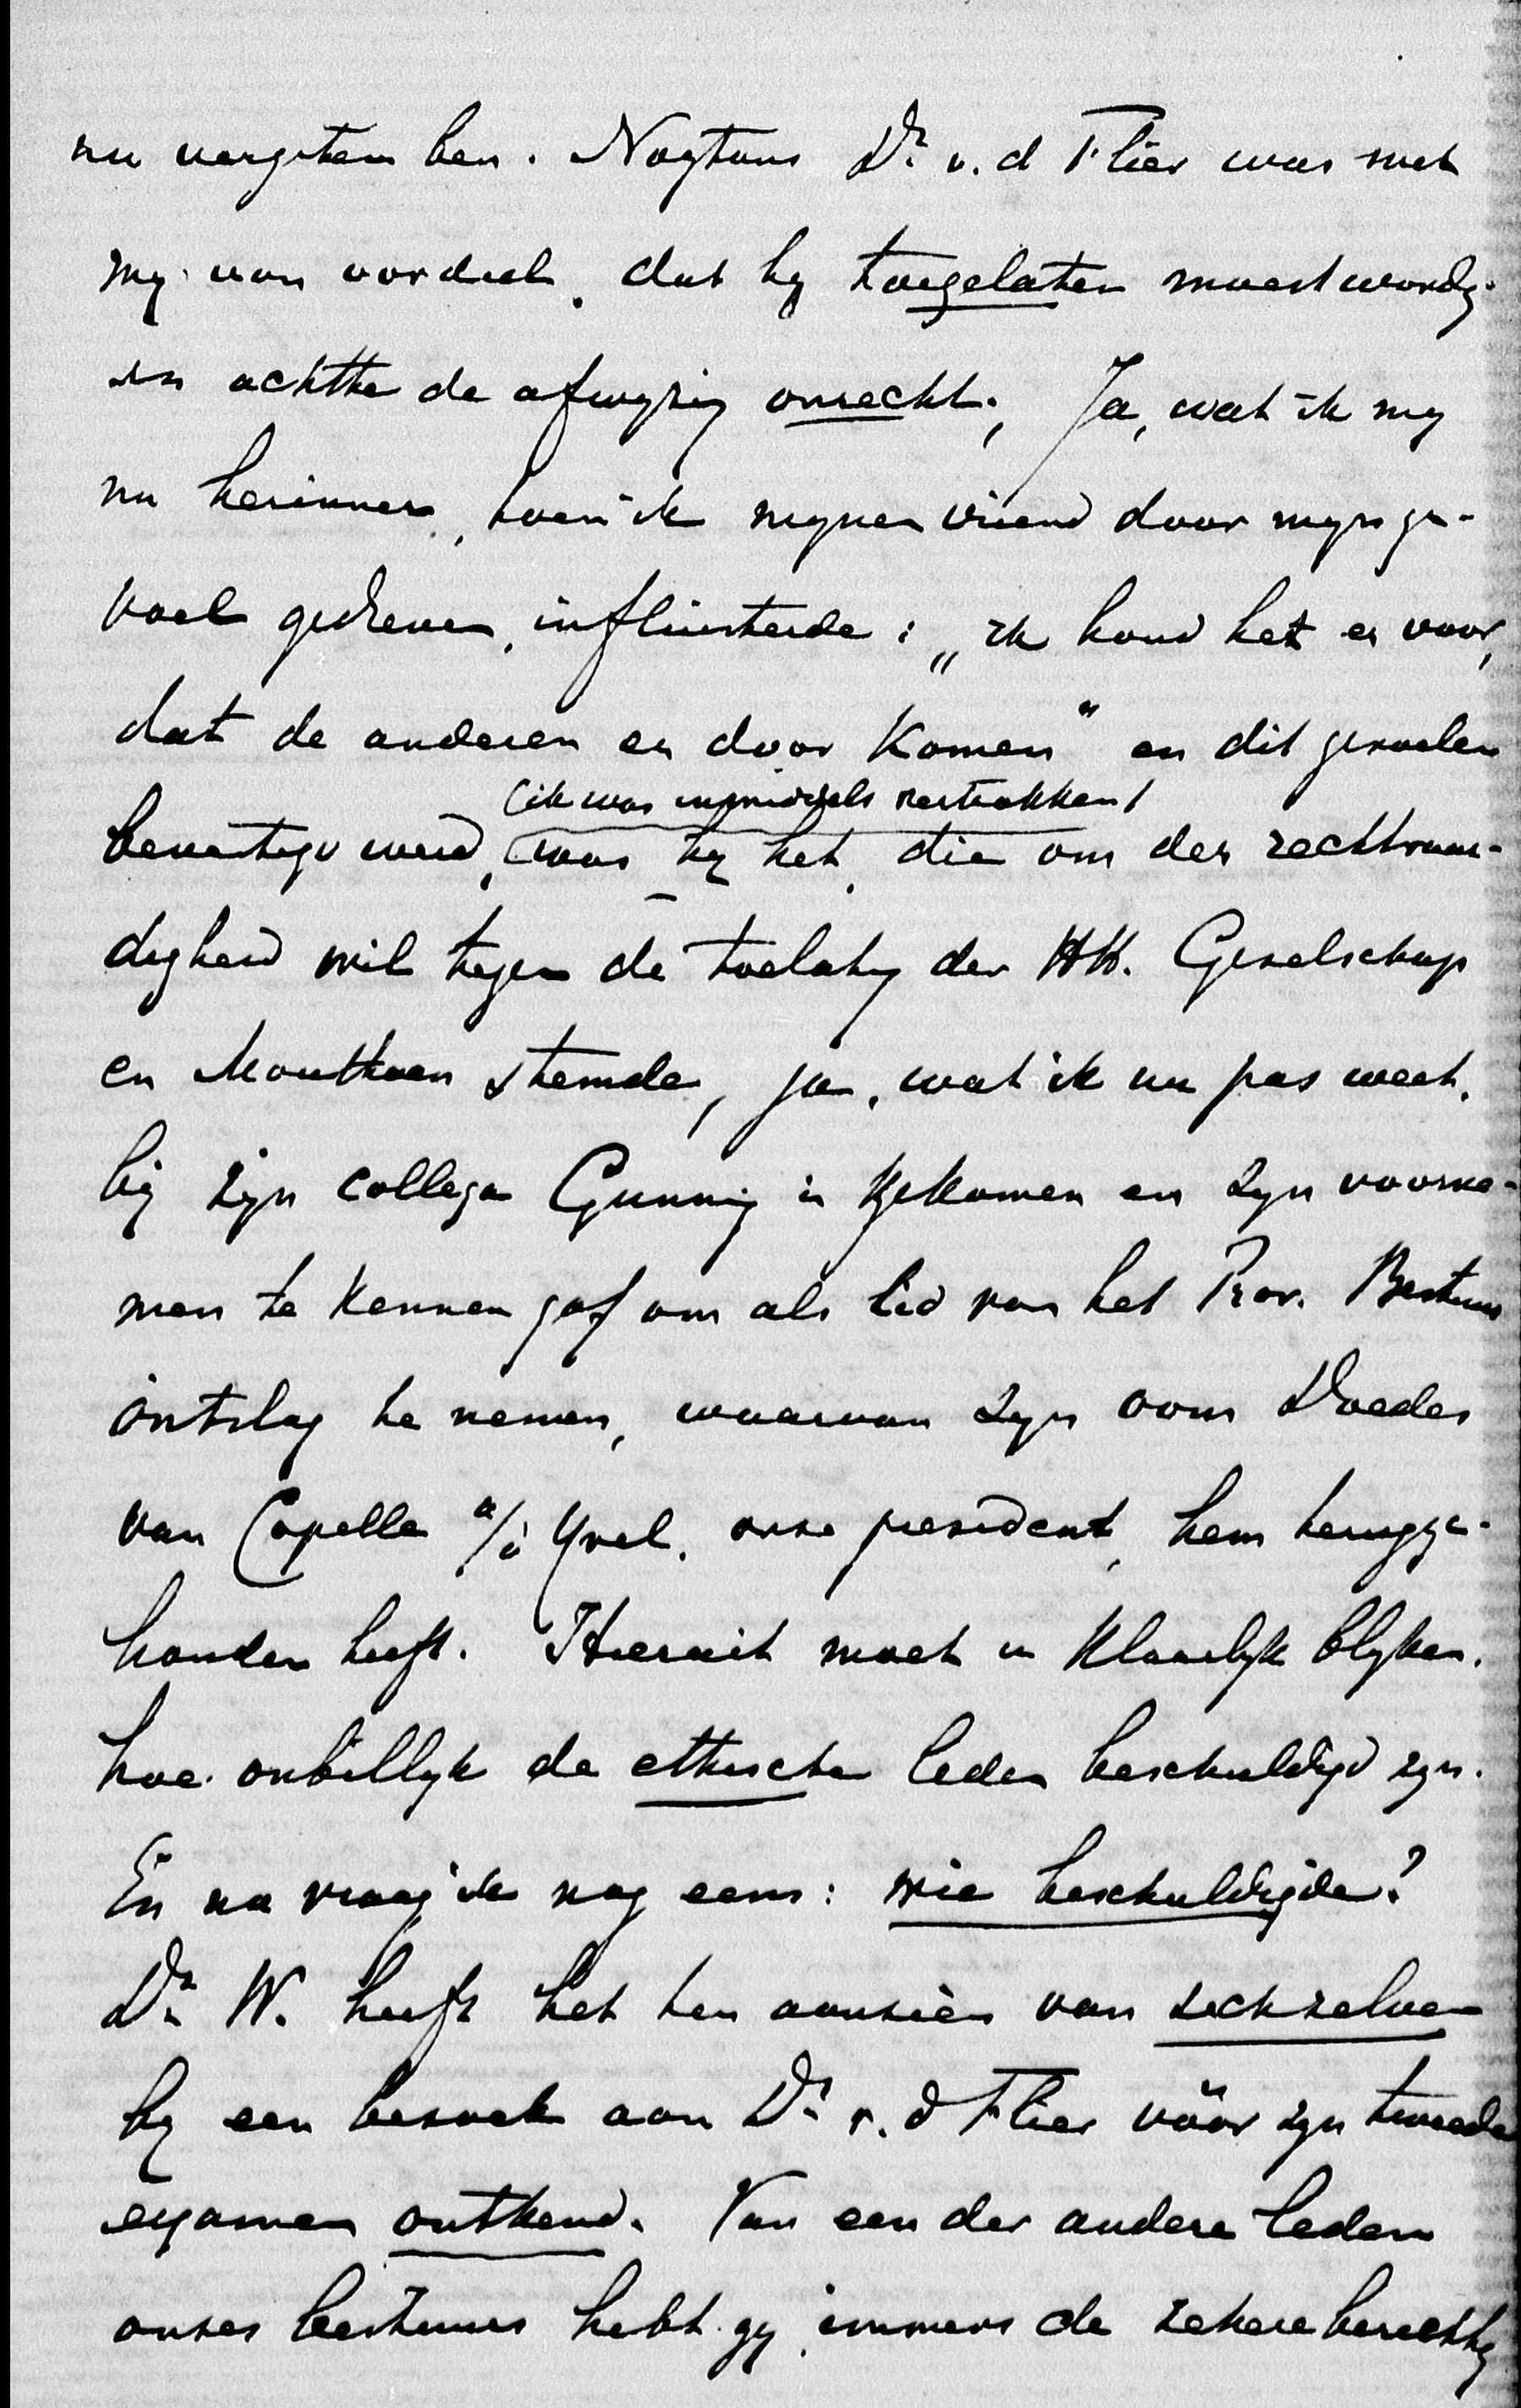 nu vergeten ben. Nogtans Dr v. d Flier was met
my van oordeel, dat hy toegelaten moest worden
en achtte de afwyzing onrecht; Ja, wat ik my
nu herinner, toen ik mynen vriend door myn ge-
voel gedreven, influisterde: „ik houd het er voor,
dat de anderen er door komen" en dit gevoelen
(ik was inmiddels vertrokken)
bevestigd werd, was hy het, die om der rechtvaar-
digheid wil tegen de toelating der HH. Gezelschap
en Mouthaan stemde, ja, wat ik nu pas weet,
bij zijn collega Gunning is gekomen en zyn voorne-
men te kennen gaf om als lid van het Prov. Bestuur
ontslag te nemen, waarvan zyn oom Doedes
van Capelle a/d Ysel, onze president, hem terugge-
houden heeft. Hieruit moet u klaarlyk blyken,
hoe onbillyk de ethische leden beschuldigd zyn.
En nu vraag ik nog eens: wie beschuldigde?
Dr W. heeft het ten aanzien van zichzelven
by een bezoek aan Dr v. d Flier vóór zyn tweede
examen ontkend. Van een der andere leden
onzes bestuurs hebt gy immers de zekere